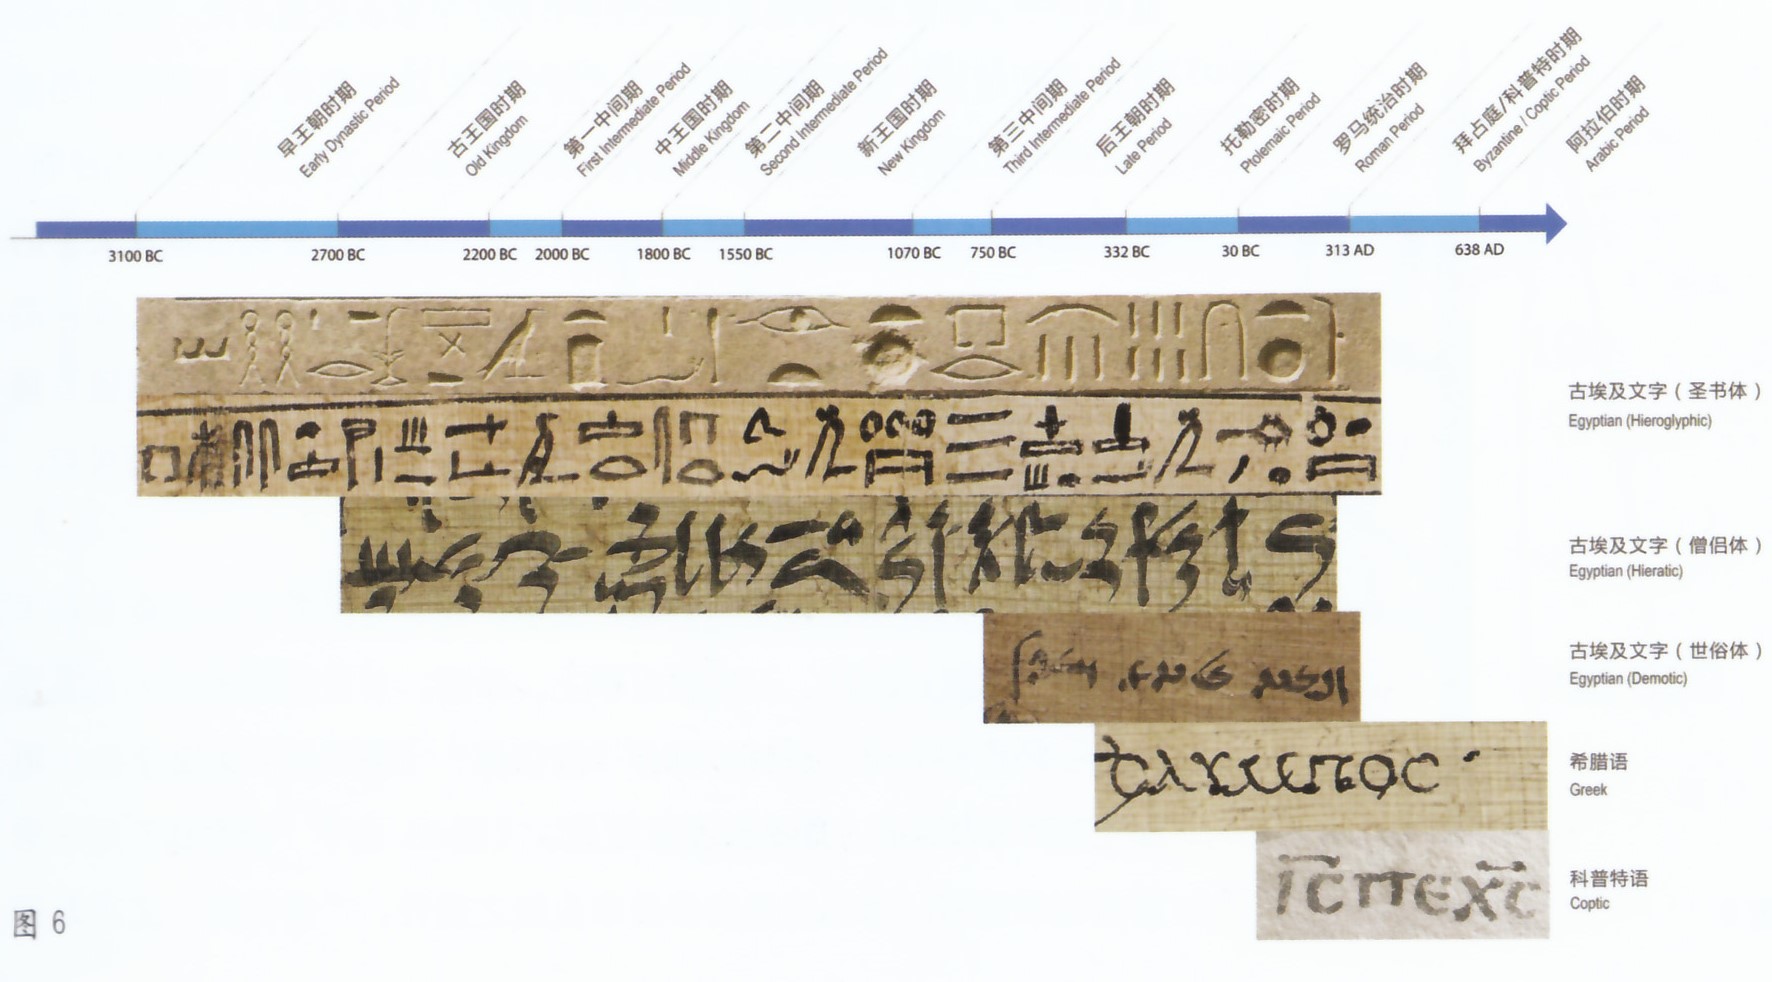 早王朝时期
Early Dynastic Period
古王国时期
Old Kingdom
第一中间期
First Intermediate Period
中王国时期
Middle Kingdom
第二中间期
Second Intermediate Period
新王国时期
New Kingdom
第三中间期
Third Intermediate Period
后王朝时期
Late Period
托勒密时期
Ptolemaic Period
罗马统治时期
Roman Period
拜占庭/科普特时期
Byzantine / Coptic Period
阿拉伯时期
Arabic Period
3100 BC 2700 BC 2200 BC 2000 BC 1800 BC 1550 BC 1070 BC 750 BC 332 BC 30 BC 313 AD 638 AD
古埃及文字（圣书体）
Egyptian (Hieroglyphic)
古埃及文字（僧侣体）
Egyptian (Hieratic)
古埃及文字（世俗体）
Egyptian (Demotic)
希腊语
Greek
ⲓ̅ⲥ̅ⲡⲉⲭ̅ⲥ̅
科普特语
Coptic
图 6